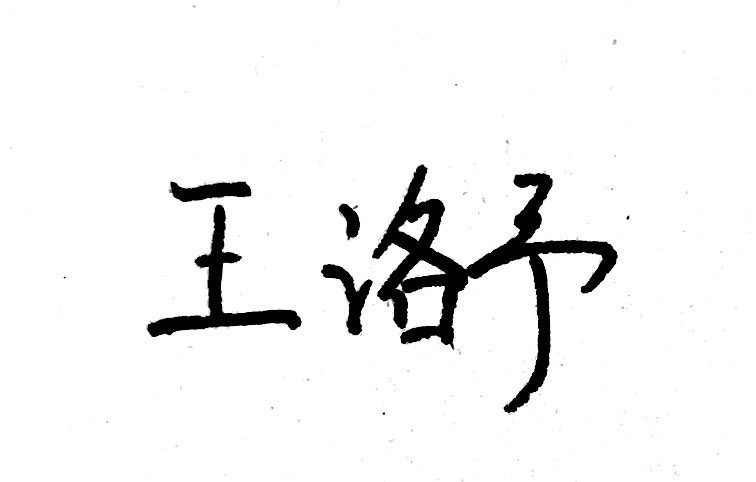 王洛予